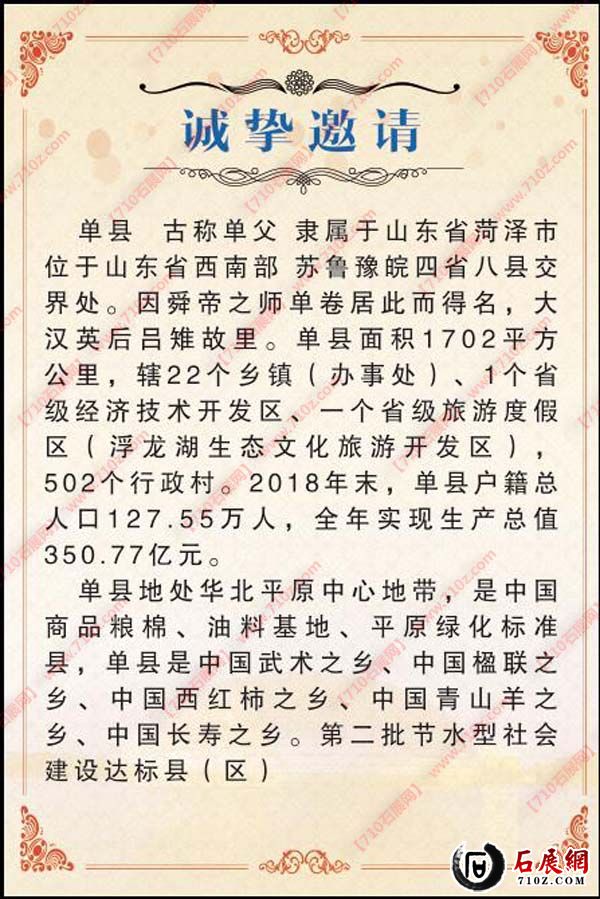 诚挚邀请
单县 古称单父 隶属于山东省菏泽市
位于山东省西南部 苏鲁豫皖四省八县交
界处。因舜帝之师单卷居此而得名，大
汉英后吕雉故里。单县面积1702平方
公里，辖22个乡镇（办事处）、1个省
级经济技术开发区、一个省级旅游度假
区（浮龙湖生态文化旅游开发区），
502个行政村。2018年末，单县户籍总
人口127.55万人，全年实现生产总值
350.77亿元。
单县地处华北平原中心地带，是中国
商品粮棉、油料基地、平原绿化标准
县，单县是中国武术之乡、中国楹联之
乡、中国西红柿之乡、中国青山羊之
乡、中国长寿之乡。第二批节水型社会
建设达标县（区）
石展網
710z.com
【710石展网】www.710z.com